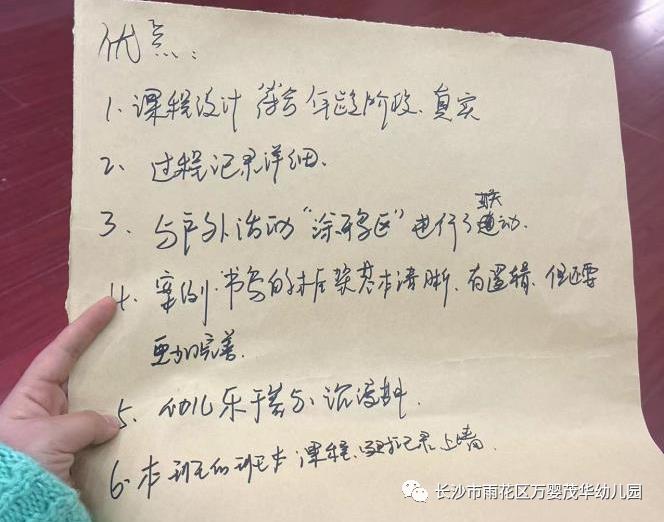 优点：
1、课程设计符合年龄阶段、真实
2、过程记录详细.
3、与户外活动“涂鸦区”进行了联动.
4、案例书写的框架基本清晰、有逻辑、但还要
更加的完善.
5、幼儿乐于参与、沉浸其中.
6、本班的班本课程、记录上墙.
长沙市雨花区万婴茂华幼儿园